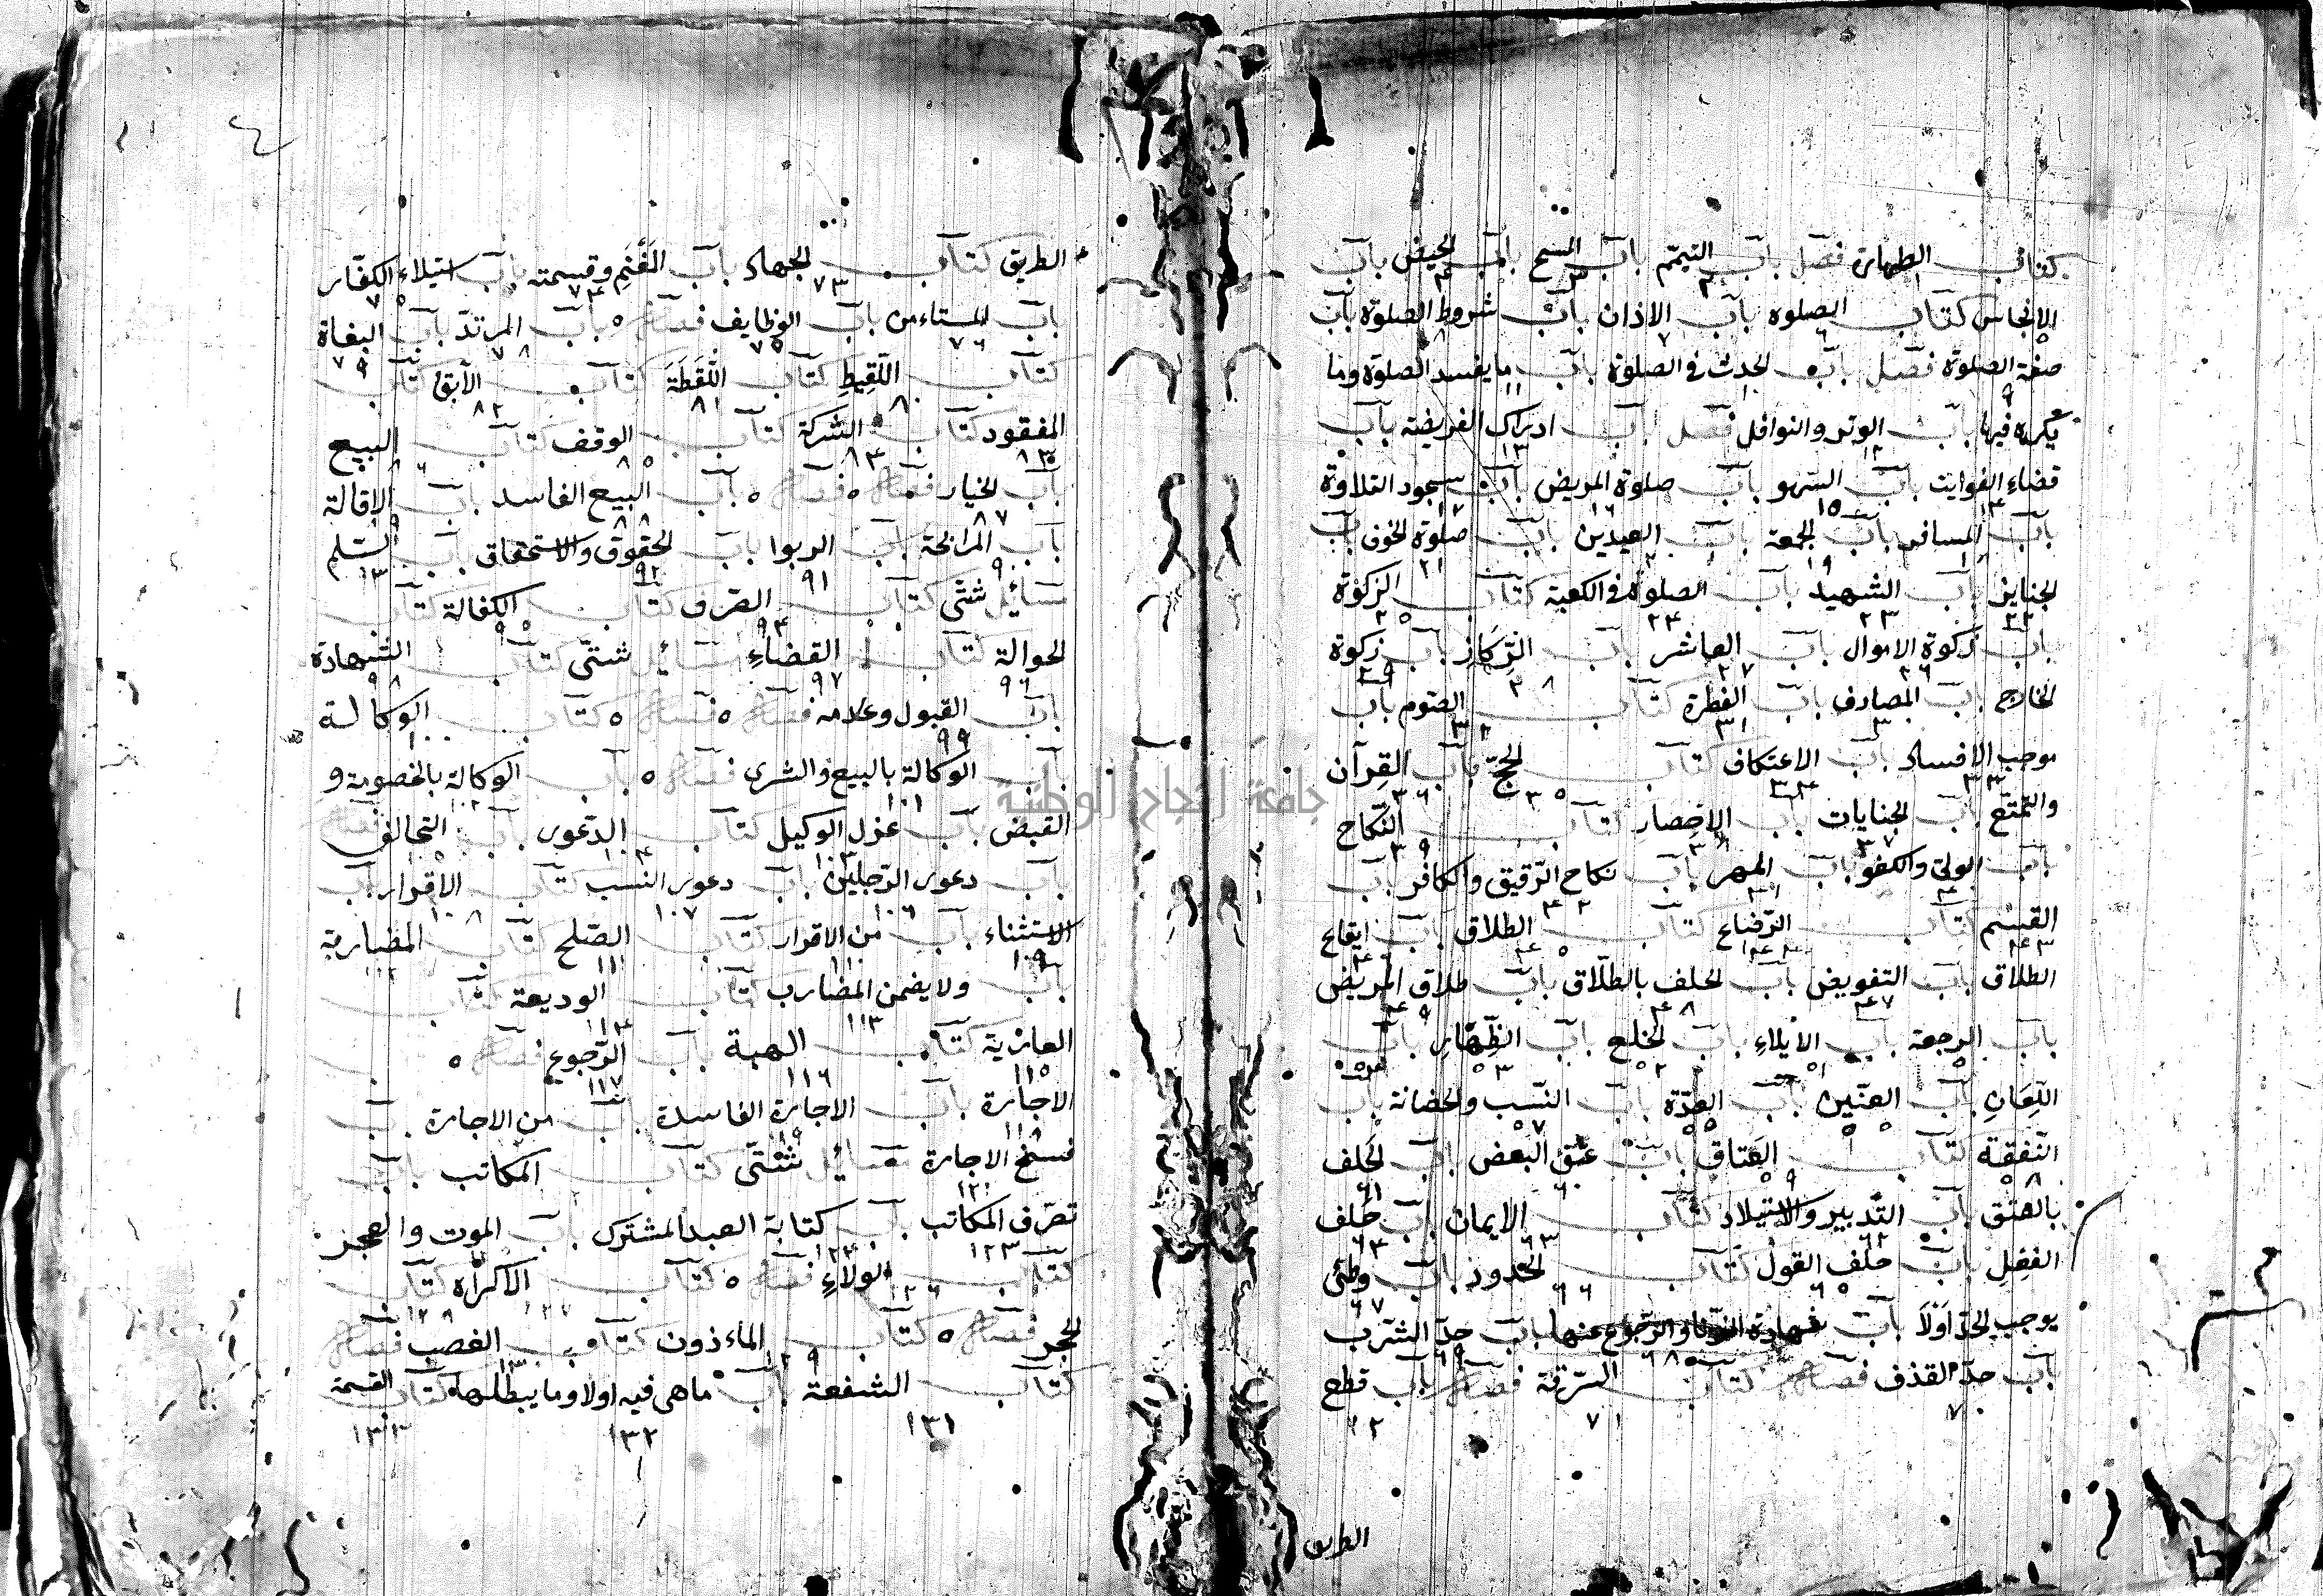 كتاب الطهارة فصل باب التيمم باب المسح باب الحيض باب
١ ٢ ٣ ٤
الانجاس كتاب الصلوة باب الاذان باب شروط الصلوة باب
٥ ٦ ٧ ٨
صفة الصلوة فصل باب الحدث في الصلوة باب ما يفسد الصلوة وما
٩ ١٠ ١١
يكره فيها باب الوتر والنوافل فصل باب ادراك الفريضة باب
١٢ ١٣
قضاء الفوايت باب السهو باب صلوة المريض باب سجود التلاوة
١٤ ١٥ ١٦ ١٧
باب المسافر باب الجمعة باب العيدين باب صلوة الخوف باب
١٨ ١٩ ٢٠ ٢١
الجنايز باب الشهيد باب الصلوة في الكعبة كتاب الزكوة
٢٢ ٢٣ ٢٤ ٢٥
باب زكوة الاموال باب العاشر باب الرِّكَازِ باب زكوة
٢٦ ٢٧ ٢٨ ٢٩
الخارج باب المصارف باب الفطرة كتاب الصّوم باب
٣٠ ٣١ ٣٢
موجب الافساد باب الاعتكاف كتاب الحجّ باب القِرآن
٣٣ ٣٤ ٣٥ ٣٦
والتمتّع باب الجنايات باب الاحصار كتاب النّكاح
٣٧ ٣٨ ٣٩
باب الولىّ والكفو باب المهر باب نكاح الرّقيق والكافر باب
٤٠ ٤١ ٤٢
القسْم كتاب الرّضاع كتاب الطلاق باب ايقاع
٤٣ ٤٤ ٤٥ ٤٦
الطلاق باب التفويض باب الحلف بالطلّاق باب طلاق المريض
٤٧ ٤٨ ٤٩
باب الرجعة باب الأيلاءِ باب الخلع باب الظِّهَارِ باب
٥٠ ٥١ ٥٢ ٥٣
اللّعَانِ باب العنّين باب العدّة باب النّسب والحضانة باب
٥٥ ٥٧
النّفقة كتاب العَتاق باب عتق البعض باب الحَلف
٥٨ ٥٩ ٦٠ ٦١
بالعتق باب التّدبير والاستيلاد كتاب الايمان باب حَلف
٦٢ ٦٣ ٦٤
الفعل باب حلف القول كتاب الحدود باب وطئ
٦٥ ٦٦ ٦٧
يوجب الحدّ اَوْلاَ باب شهادة الزّنا والرّجوع عنها باب حدّ الشّرب
٦٨ ٦٩
باب حدّ القذف فصل كتاب السّرقة فصل باب قطع
٧٠ ٧١
الطريق
الطريق كتاب الجهاد باب المَغْنَم وقسمته باب استيلاء الكفّار
٧٣ ٧٤ ٧٥
باب المستاءمن باب الوظايف فصل باب المرتدّ باب البغاة
٧٦ ٧٧ ٧٨ ٧٩
كتاب اللّقيطِ كتاب اللّقَطَةَ كتاب الآبق كتاب
٨٠ ٨١ ٨٢
المفقود كتاب الشركة كتاب الوقف كتاب البيع
٨٣ ٨٤ ٨٥ ٨٦
باب الخيار فصل فصل باب البيع الفاسد باب الاقالة
٨٧ ٨٨ ٨٩
باب المرابحة باب الربوا باب الحقوق والاستحقاق باب السّلم
٩٠ ٩١ ٩٢ ٩٣
مسائل شتّى كتاب الصّرف كتاب الكفالة كتاب
٩٤ ٩٥
الحوالة كتاب القضاءِ مسائل شتّى كتاب الشهادة
٩٦ ٩٧ ٩٨
باب القبول وعدمه فصل فصل كتاب الوكالة
٩٩ ١٠٠
باب الوكالة بالبيع والشرى فصل باب الوكالة بالخصومة و
١٠١ ١٠٢
القبض باب عزل الوكيل كتاب الدّعوى باب التحالف فصل
١٠٣ ١٠٤ ١٠٥
باب دعوى الرّجلين باب دعوى النسب كتاب الاقرار باب
١٠٦ ١٠٧ ١٠٨
الاستثناء باب من الاقرار كتاب الصّلح كتاب المضاربة
١٠٩ ١١٠ ١١١ ١١٢
باب ولا يضمن المضارب كتاب الوديعة كتاب
١١٣ ١١٤
العارية كتاب الهبة باب الرّجوع فصل
١١٥ ١١٦ ١١٧
الاجارة باب الاجارة الفاسدة باب من الاجارة باب
١١٨ ١١٩
فسخ الاجارة مسائل شتّى كتاب المكاتب باب
١٢١
تصرّف المكاتب باب كتابة العبد المشترك باب الموت والعجز
١٢٣ ١٢٤
كتاب الولاءِ فصل كتاب الأكراه كتاب
١٢٦ ١٢٧ ١٢٨
الحجر فصل كتاب الماءذون كتاب الغصب فصل
١٢٩ ١٣٠
كتاب الشفعة باب ما هي فيه اولا وما يبطلها كتاب القسمة
١٣١ ١٣٢ ١٣٣
جامعة النجاح الوطنية